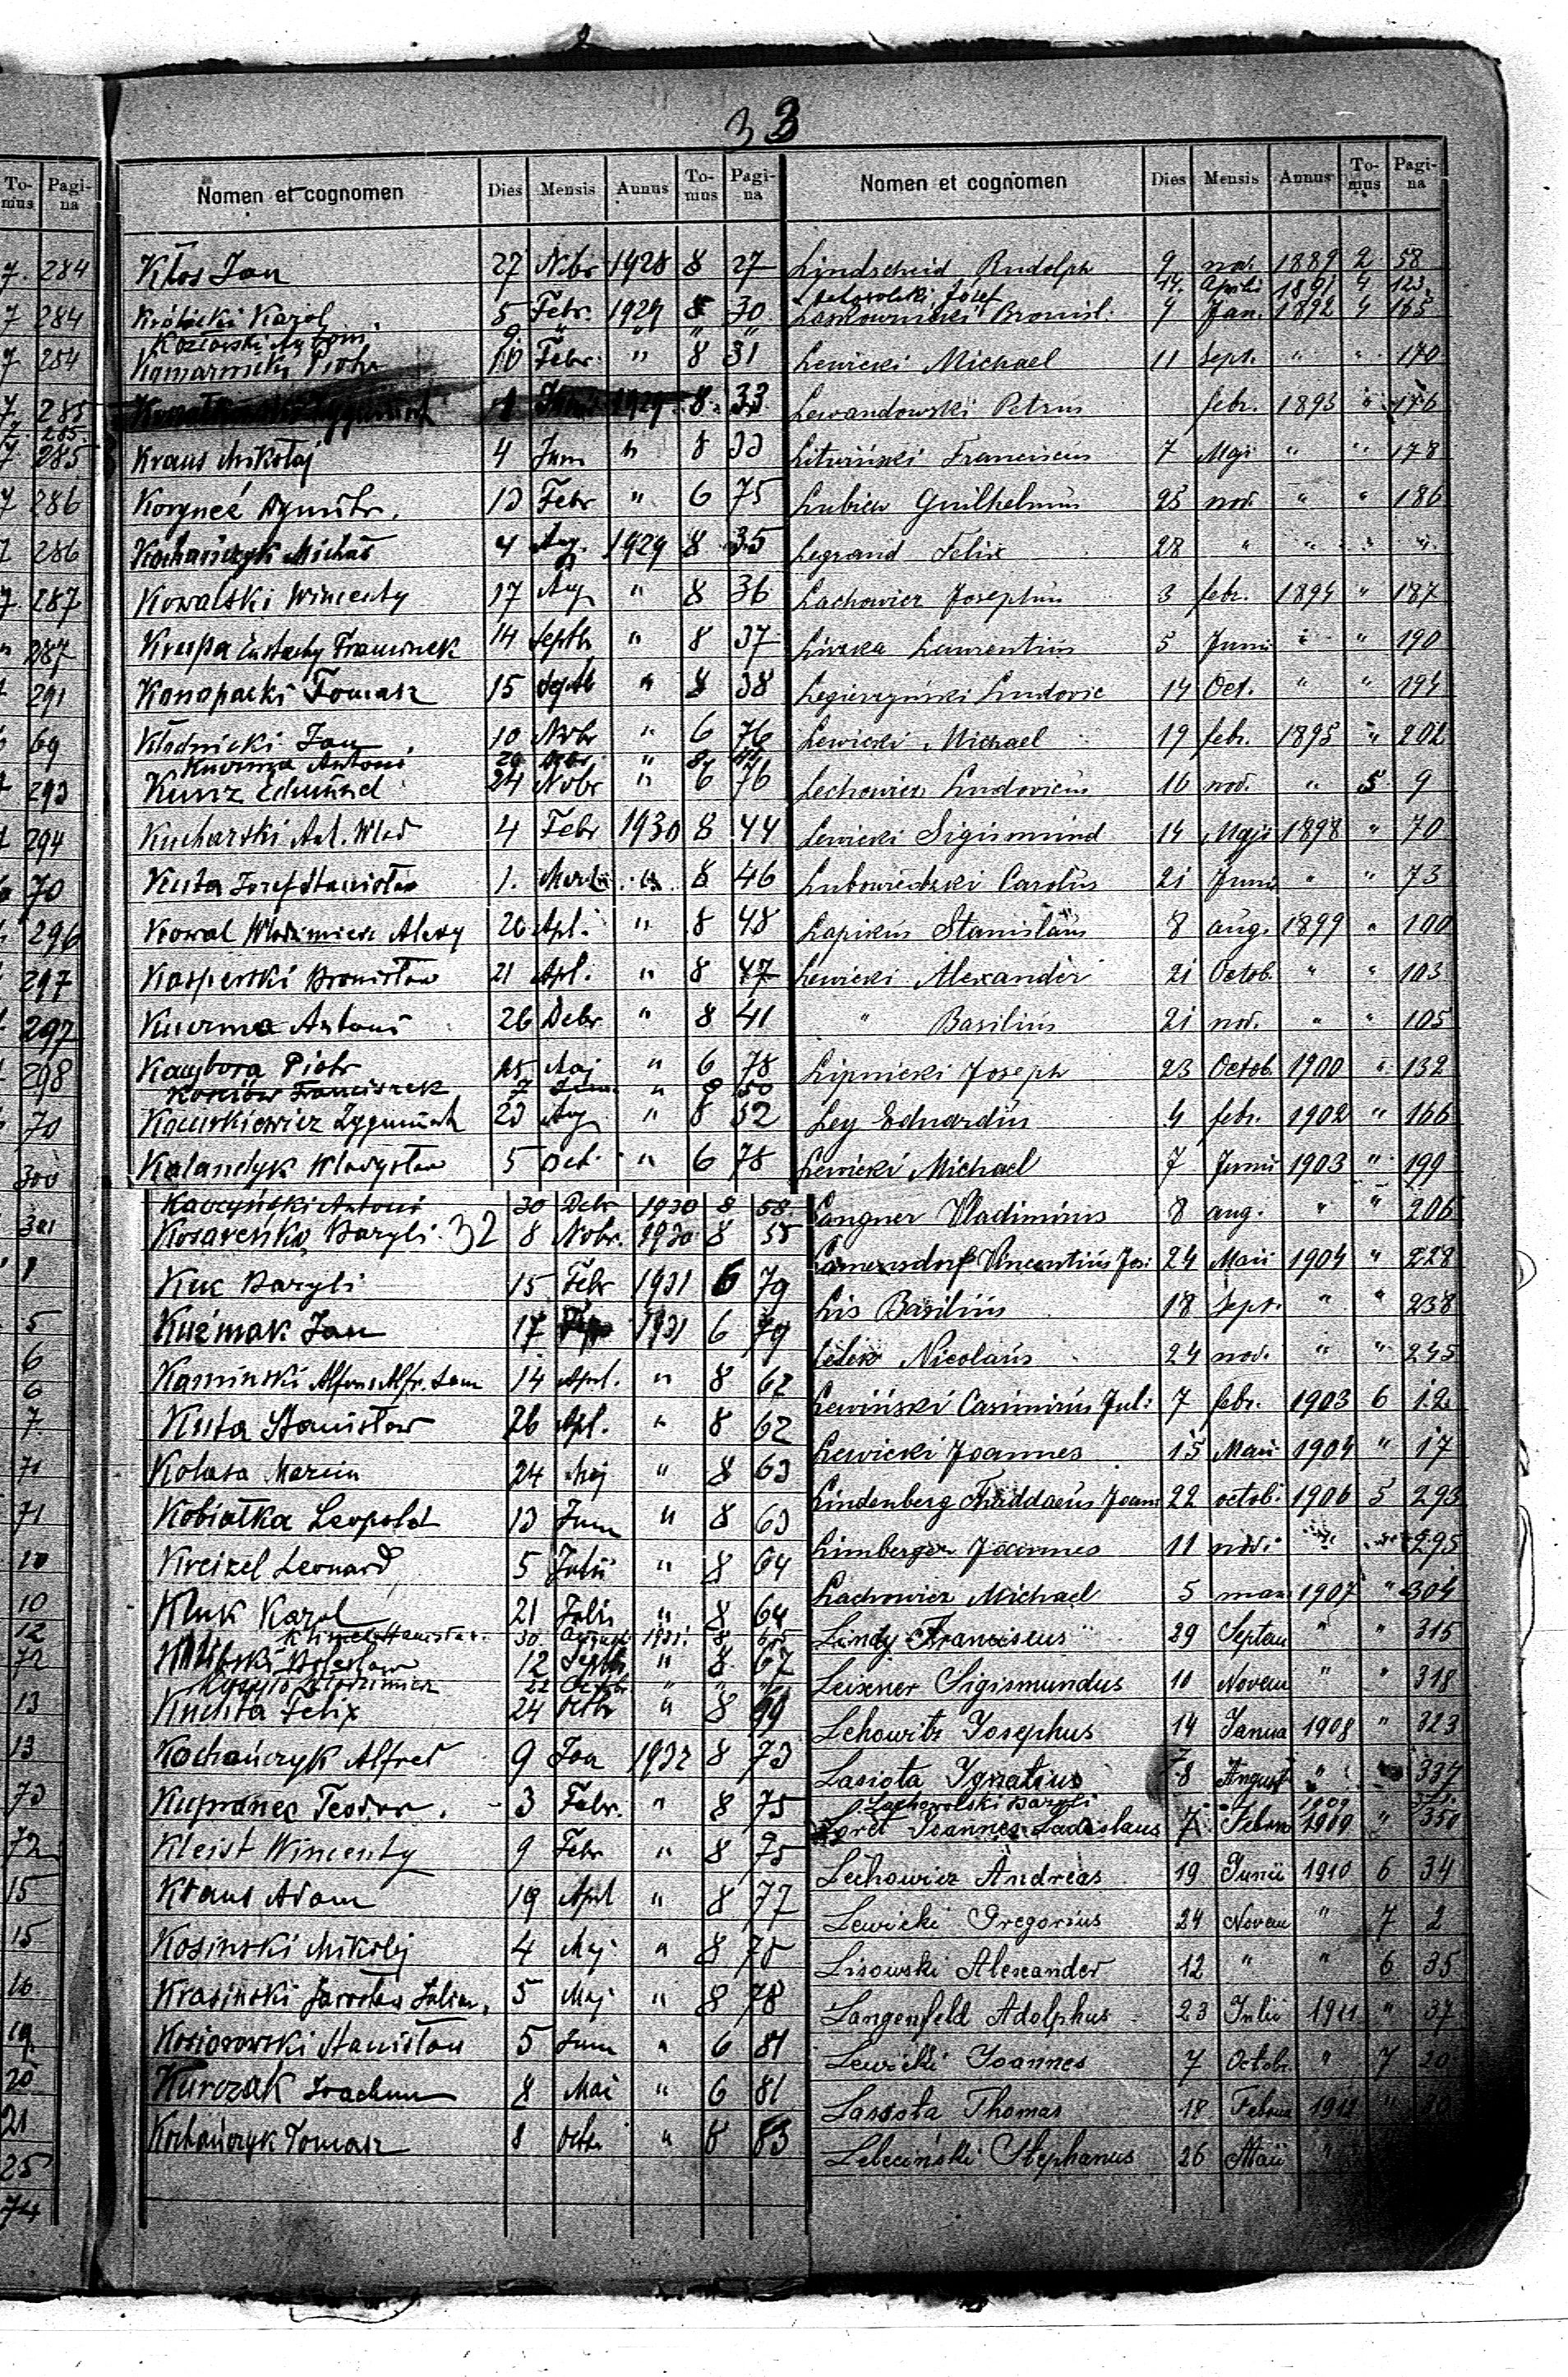 33
To-mus Pagi-na
7. 284
7 284
7 284
7 285
7. 285
7. 285
7 286
7 286
7 287
" 287
291
69
293
294
70
296
297
297
298
70
300
301
1
5
6
6
7
71
71
10
10
12
72
13
13
73
72
15
15
16
19
20
21
25
74
Nomen et cognomen Dies Mensis Annus To-mus Pagi-na
Kłos Jan 27 Nbr 1928 8 27
Karol 5 Febr. 1929 8 30
Kozłowski Antoni 9. " " " "
Piotr 10 Febr. " 8 31
1929 8. 33
Kraus Mikołaj 4 Jun " 8 33
Dymitr. 13 Febr " 6 75
Kochańczyk Michał 4 Aug. 1929 8 35
Kowalski Wincenty 17 Aug " 8 36
Krespa Eustachy Franciszek 14 Septb " 8 37
Konopacki Tomasz 15 Septb " 8 38
Kłodnicki Jan 10 Nvbr " 6 76
Antoni 29 "
Kunz Edmund 24 Nvbr " 6 76
Kucharski Ant. Wład 4 Febr 1930 8 44
Kuta Josef Stanisław 1. Martii " 8 46
Kowal Włodzimierz Alexy 26 Apl. " 8 48
Kasperski Bronisław 21 Apl. " 8 47
Antoni 26 Debr " 8 41
Piotr 25 Maj " 6 78
Franciszek 7 Jun " 8 50
Zygmunt 23 Aug " 8 52
Kalandyk Władysław 5 Oct. " 6 78
Kaczyński Antoni 30 Debr 1930 8 58.
Kosareńko Bazyli. 32 8 Nobr. 1930 8 55
Kuc Bazyli 15 Febr 1931 6 79
Kuźmak Jan 17 1931 6 79
Kamiński 14 Apl. " 8 62
Kuta Stanisław 26 Apl. " 8 62
Kolasa Marcin 24 Maj " 8 63
Kobiałka Leopold 13 Jun " 8 63
Kreizel Leonard 5 Julii " 8 64
Kluk Karol 21 Julii " 8 64
Stanisław. 30 1931. 8 65
Bolesław 12 Septb " 8 67
Włodzimierz 22 Octob. " "
Kuchta Felix 24 Octbr " 8 99
Kochańczyk Alfred 9 Jan 1932 8 73
Kupranec Teodor. 3 Febr. " 8 75
Kleist Wincenty 9 Febr " 8 75
Kraus Adam 19 Apl " 8 77
Kosinski Mikołaj 4 Maj " 8 78
Krasiński Jarosław Julian, 5 Maj " 8 78
Kosiorowski Stanisław 5 Jun " 6 81
Kurczak Joachim 8 Mai " 6 81
Kochańczyk Tomasz 8 Octb. " 8 83
Nomen et cognomen Dies Mensis Annus To-mus Pagi-na
Lindscheid Rudolph 9 nov. 1889 2 58
Józef 14. Aprili 1891 4 123.
Bronisl. 7 Jan. 1892 4 165
Lewicki Michael 11 Sept. " " 170
Lewandowski Petrus febr. 1893 " 176
Litwiński Franciscus 7 Maji " " 178
Lubicw Guilhelmus 25 nov. " " 186
Legrand Felix 28 " " " "
Lachowicz Josephus 3 febr. 1894 " 187
Liszka Laurentius 5 Junii " " 190
Legieczyński Ludovic 14 Oct. " " 194
Lewicki Michael 19 febr. 1895 " 202
Lechowicz Ludovicus 16 nov. " 5 9
Lewicki Sigismund 14 Maji 1898 " 70
Lubowiedzki Carolus 21 Junii " " 73
Lapikus Stanislaus 8 aug. 1899 " 100
Lewicki Alexander 21 Octob. " " 103
" Basilius 21 nov. " " 105
Lipnicki Joseph 23 Octob. 1900 " 132
Ley Eduardus 4 febr. 1902 " 166
Lewicki Michael 7 Junii 1903 " 199
Langner Vladimirus 8 aug. " " 206
Lamensdorf Vincentius Jos: 24 Maii 1904 " 228
Lis Basilius 18 Sept. " " 238
Lelek Nicolaus 24 nov. " " 245
Lewiński Casimirus Jul: 7 febr. 1903 6 12
Lewicki Joannes 15 Maii 1904 " 17
Lindenberg Thaddaeus Joan 22 octob. 1906 5 293
Limberger Joannes 11 nov. " " 295
Lachowicz Michael 5 1907 " 304
Lindy Franciscus 29 Septem " " 315
Leixner Sigismundus 10 Novem " " 318
Lehowitz Josephus 14 Janua 1908 " 323
Lasiota Ignatius 8 August " 337
Bazyli 1909
Joannes Ladislaus 7 Februa 1909 " 350
Lechowicz Andreas 19 Junii 1910 6 34
Lewicki Gregorius 24 Novem " 7 2
Lisowski Alexander 12 " " 6 35
Langenfeld Adolphus 23 Julii 1911 " 37
Lewicki Joannes 7 Octobr. " 7 20
Lassota Thomas 18 Februa 1912 "
Lebeciński Stephanus 26 Maii